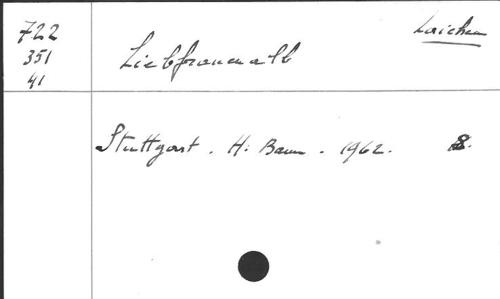 722
351
41
Laichen
Liebfrauenalb
Stuttgart. H: Baum. 1962. 8.